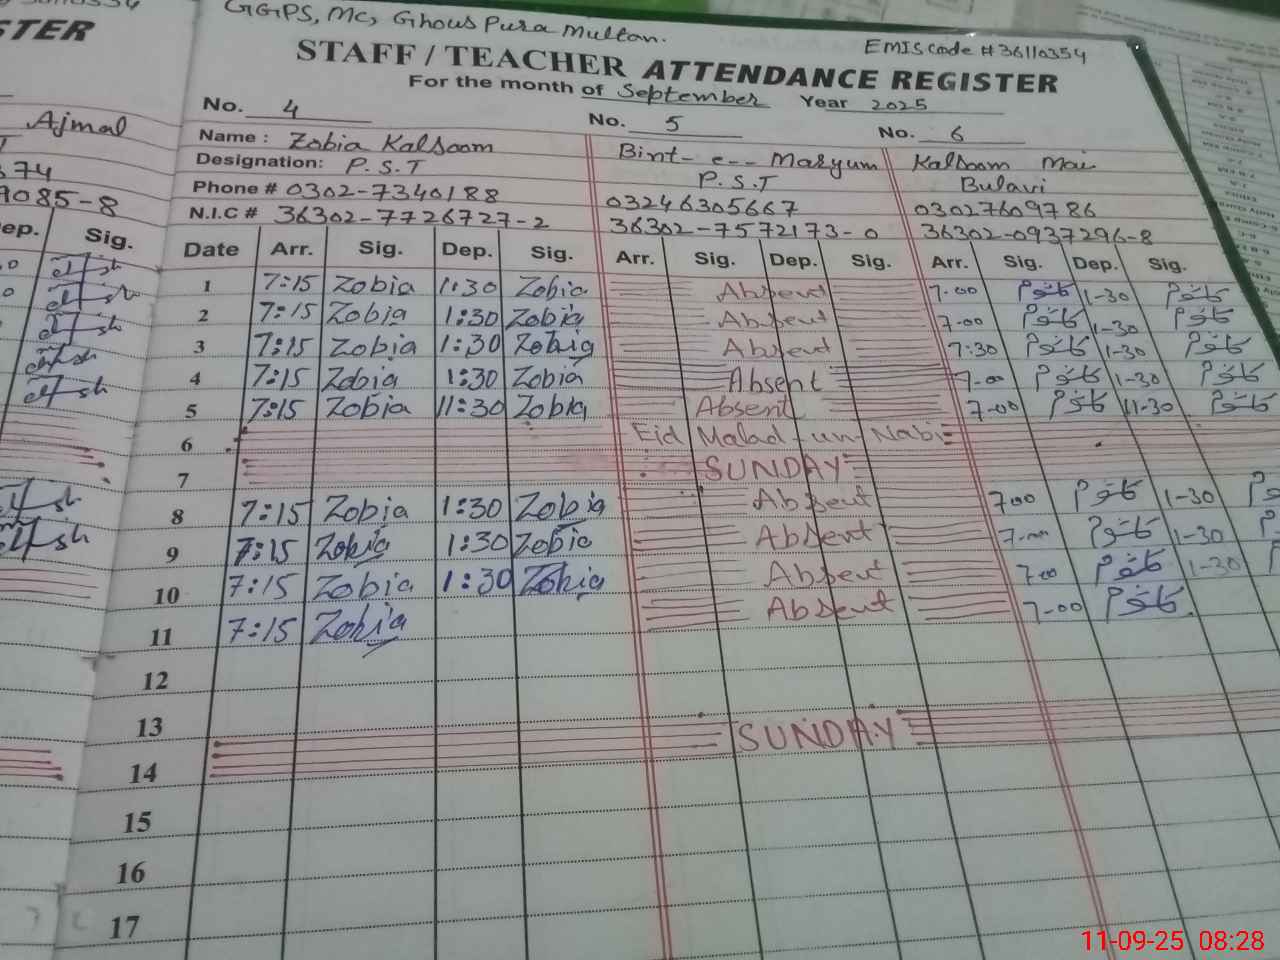 GGPS, MC, Ghous Pura Multan.
EMIS code # 36110354
STER
STAFF / TEACHER ATTENDANCE REGISTER
For the month of September Year 2025
No. 4 No. 5 No. 6
Ajmal
Name : Zobia Kalsoom Bint-e-Maryum Kalsoom Mai
Designation: P.S.T P.S.T Bulavi
374
Phone # 0302-7340188 03246305667 03027609786
9085-8
N.I.C # 36302-7726727-2 36302-7572173-0 36302-0937296-8
ep. Sig.
Date Arr. Sig. Dep. Sig. Arr. Sig. Dep. Sig. Arr. Sig. Dep. Sig.
1 7:15 Zobia 1:30 Zobia Absent 7-00 کلثوم 1-30 کلثوم
2 7:15 Zobia 1:30 Zobia Absent 7-00 کلثوم 1-30 کلثوم
3 7:15 Zobia 1:30 Zobia Absent 7:30 کلثوم 1-30 کلثوم
4 7:15 Zobia 1:30 Zobia Absent 7-00 کلثوم 1-30 کلثوم
5 7:15 Zobia 11:30 Zobia Absent 7-00 کلثوم 11-30 کلثوم
6 Eid Malad-un-Nabi
7 SUNDAY
8 7:15 Zobia 1:30 Zobia Absent 7-00 کلثوم 1-30
9 7:15 Zobia 1:30 Zobia Absent 7-00 کلثوم 1-30
10 7:15 Zobia 1:30 Zobia Absent 7-00 کلثوم 1-30
11 7:15 Zobia Absent 7-00 کلثوم
12
13
14 SUNDAY
15
16
17
11-09-25 08:28